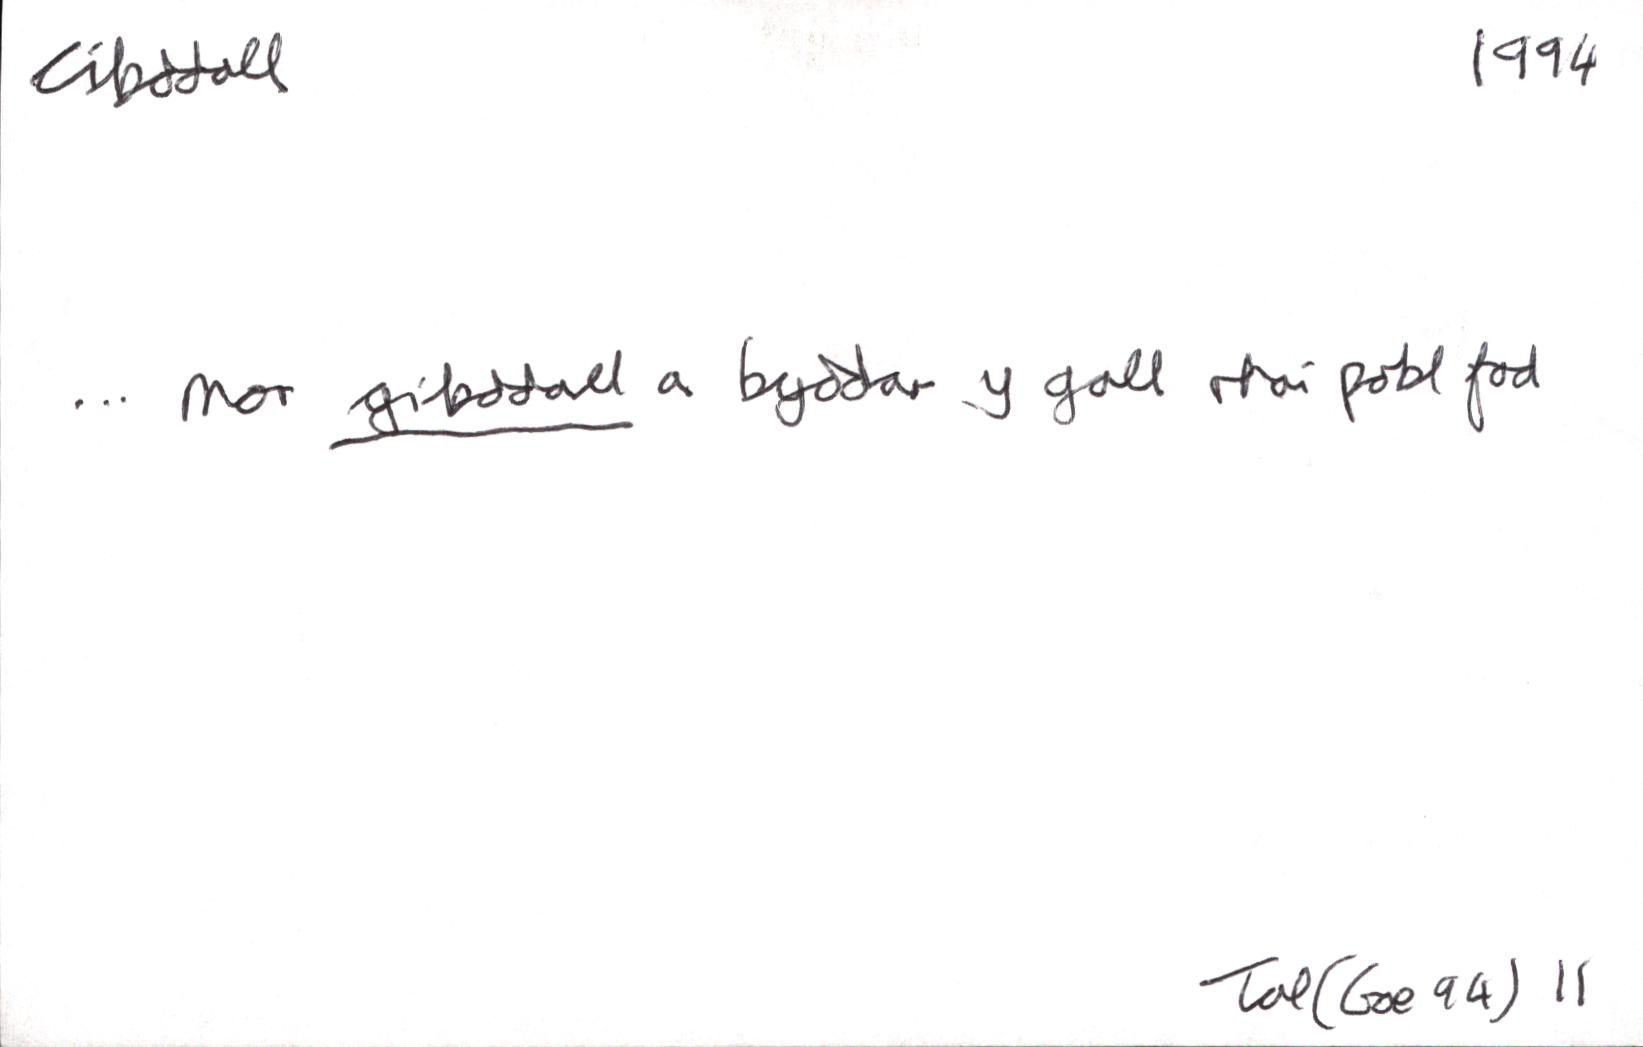 Cibddall 1994
... mor gibddall a byddar y gall rhai pobl fod
Tal (Goe 94) 11